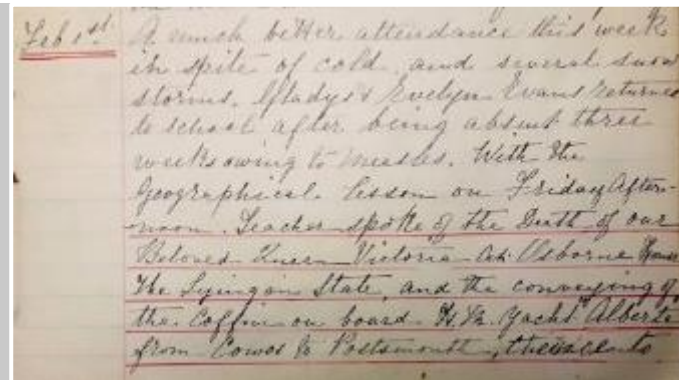 Feb 1st. A much better attendance this week
in spite of cold, and several snow
storms. Gladys & Evelyn Evans returned
to school after being absent three
weeks owing to measles. With the
Geographical lesson on Friday After-
noon. Teacher spoke of the Death of our
Beloved Queen Victoria at Osborne House
The Lying in State, and the conveying of
the Coffin on board H.M. Yacht "Alberta
from Cowes to Portsmouth,